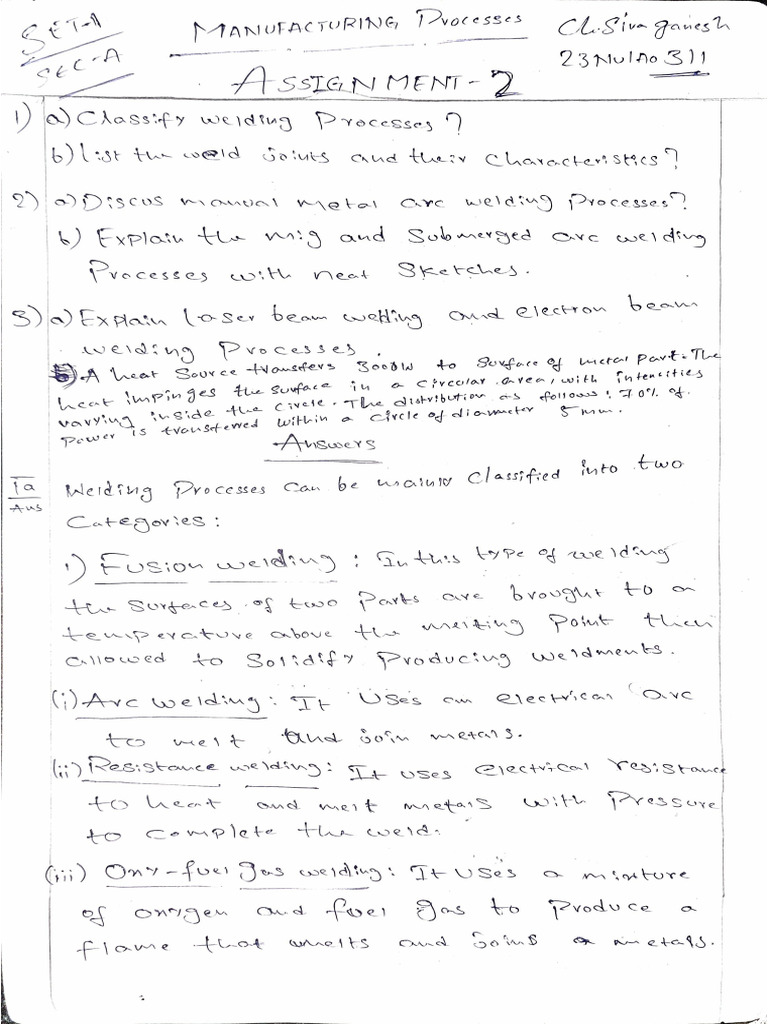 SET-1
SEC-A
MANUFACTURING Processes
Ch.Siva ganesh
23NU1A0311
ASSIGNMENT-2
1) a) Classify welding Processes?
b) list the weld joints and their characteristics?
2) a) Discus manual metal arc welding Processes?
b) Explain the mig and Submerged arc welding
Processes with neat Sketches.
3) a) Explain laser beam welding and electron beam
welding Processes.
b) A heat Source transfers 3000W to Surface of metal Part. The
heat impinges the surface in a circular area, with intencities
varying inside the circle. The distribution as follows: 70% of
Power is transfered within a circle of diameter 5mm.
Answers
1a
Ans
Welding Processes can be mainly Classified into two
Categories:
1) Fusion welding: In this type of welding
the surfaces of two Parts are brought to a
temperature above the melting Point then
allowed to Solidify Producing weldments.
(i) Arc welding: It uses an electrical arc
to melt and join metals.
(ii) Resistance welding: It uses electrical resistance
to heat and melt metals with Pressure
to complete the weld.
(iii) Oxy-fuel gas welding: It uses a mixture
of oxygen and fuel gas to Produce a
flame that melts and joins metals.